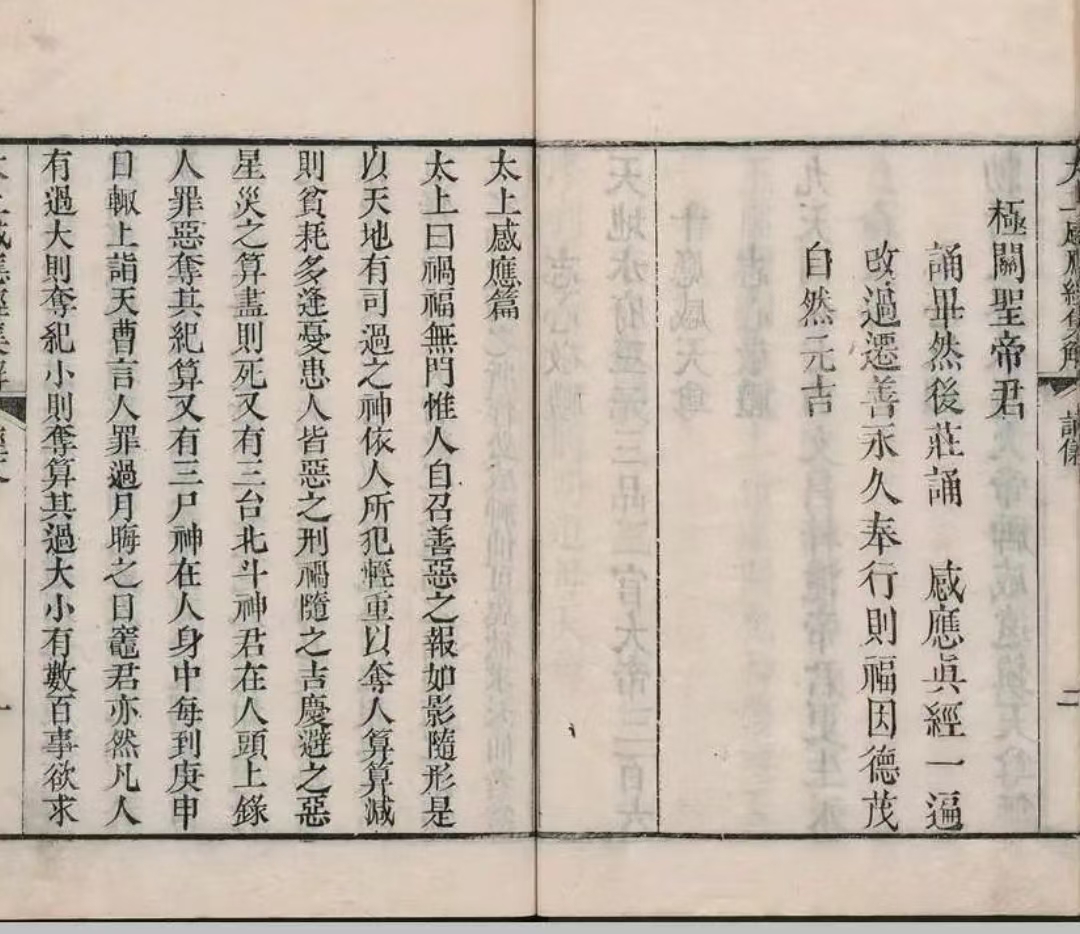 太上感應經集解 誦儀 二
極關聖帝君
誦畢然後莊誦 感應眞經一遍
改過遷善永久奉行則福因德茂
自然元吉
太上感應篇
太上曰禍福無門惟人自召善惡之報如影隨形是
以天地有司過之神依人所犯輕重以奪人算算減
則貧耗多逢憂患人皆惡之刑禍隨之吉慶避之惡
星災之算盡則死又有三台北斗神君在人頭上錄
人罪惡奪其紀算又有三尸神在人身中每到庚申
日輙上詣天曹言人罪過月晦之日竈君亦然凡人
有過大則奪紀小則奪算其過大小有數百事欲求
太上感應經集解 經文 一